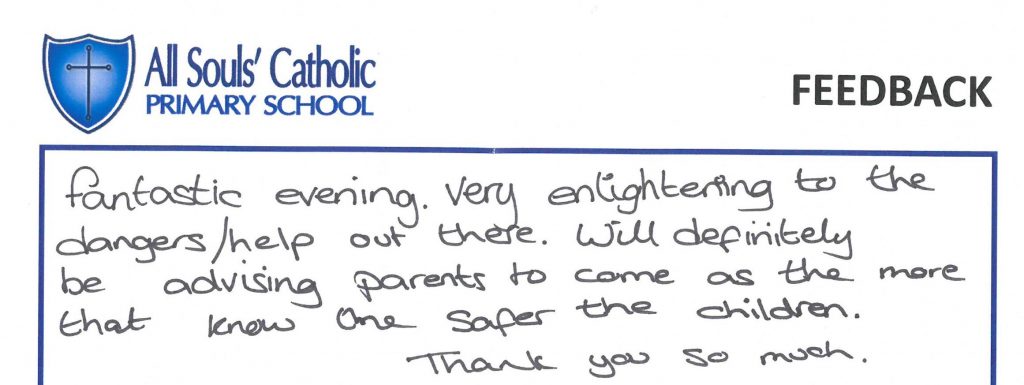 All Souls' Catholic
PRIMARY SCHOOL
FEEDBACK
fantastic evening. Very enlightering to the
dangers/help out there. Will definitely
be advising parents to come as the more
that know One safer the children.
Thank you so much.